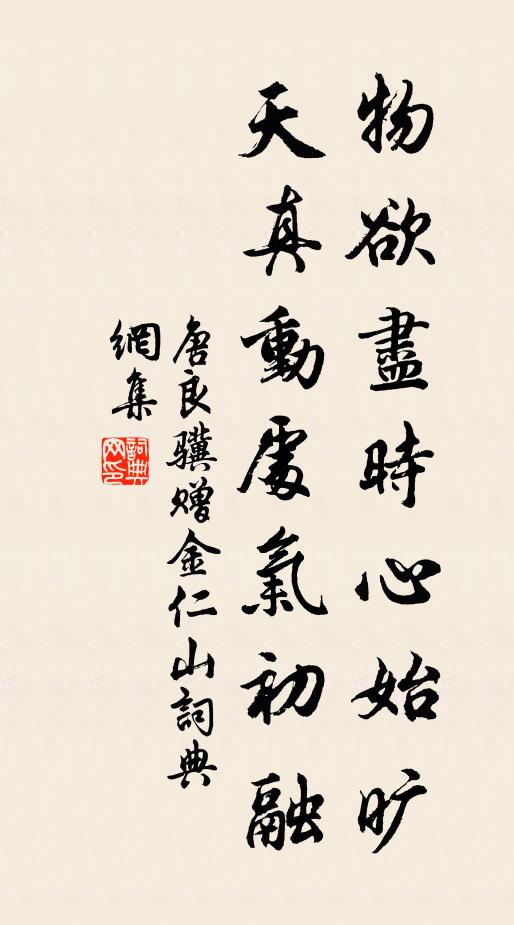 物欲盡時心始旷
天真動處氣初融
唐良骥赠金仁山詞典
網集
詞典網印